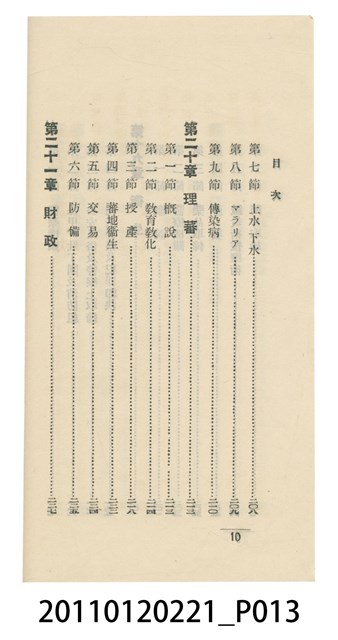 目次
第七節 上水下水 二〇八
第八節 マラリア 二〇九
第九節 傳染病 二一〇
第二十章 理蕃 二一三
第一節 概說 二一三
第二節 敎育敎化 二一四
第三節 授產 二一八
第四節 蕃地衞生
第五節 交易
第六節 防備
第二十一章 財政
10
20110120221_P013